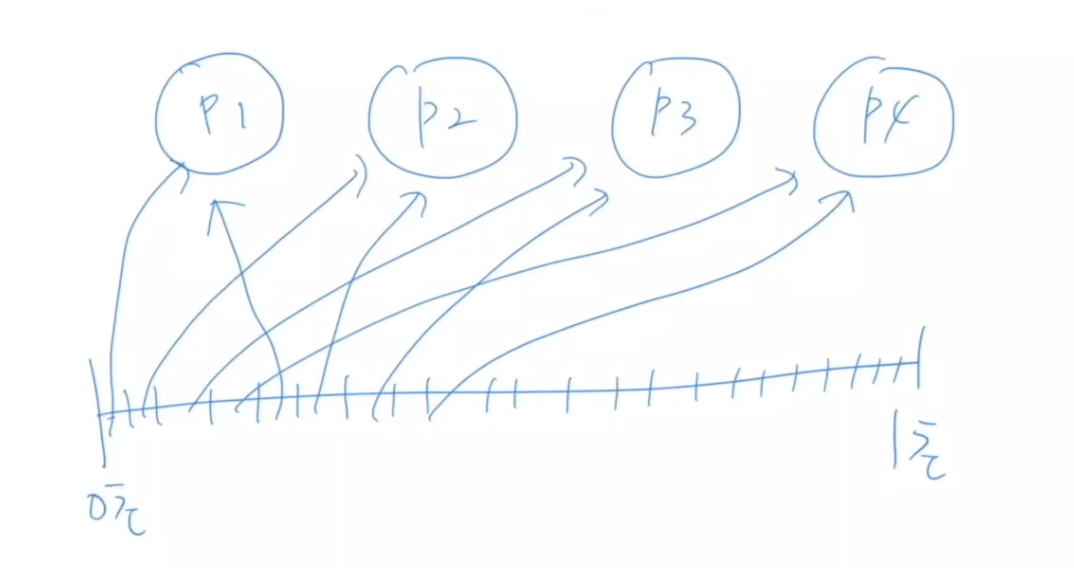 p1 p2 p3 p4
0초 1초